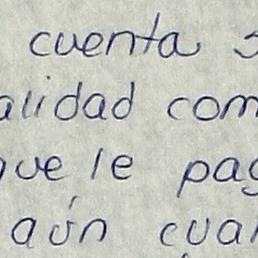 cuenta s
alidad com
que le pag
aún cual